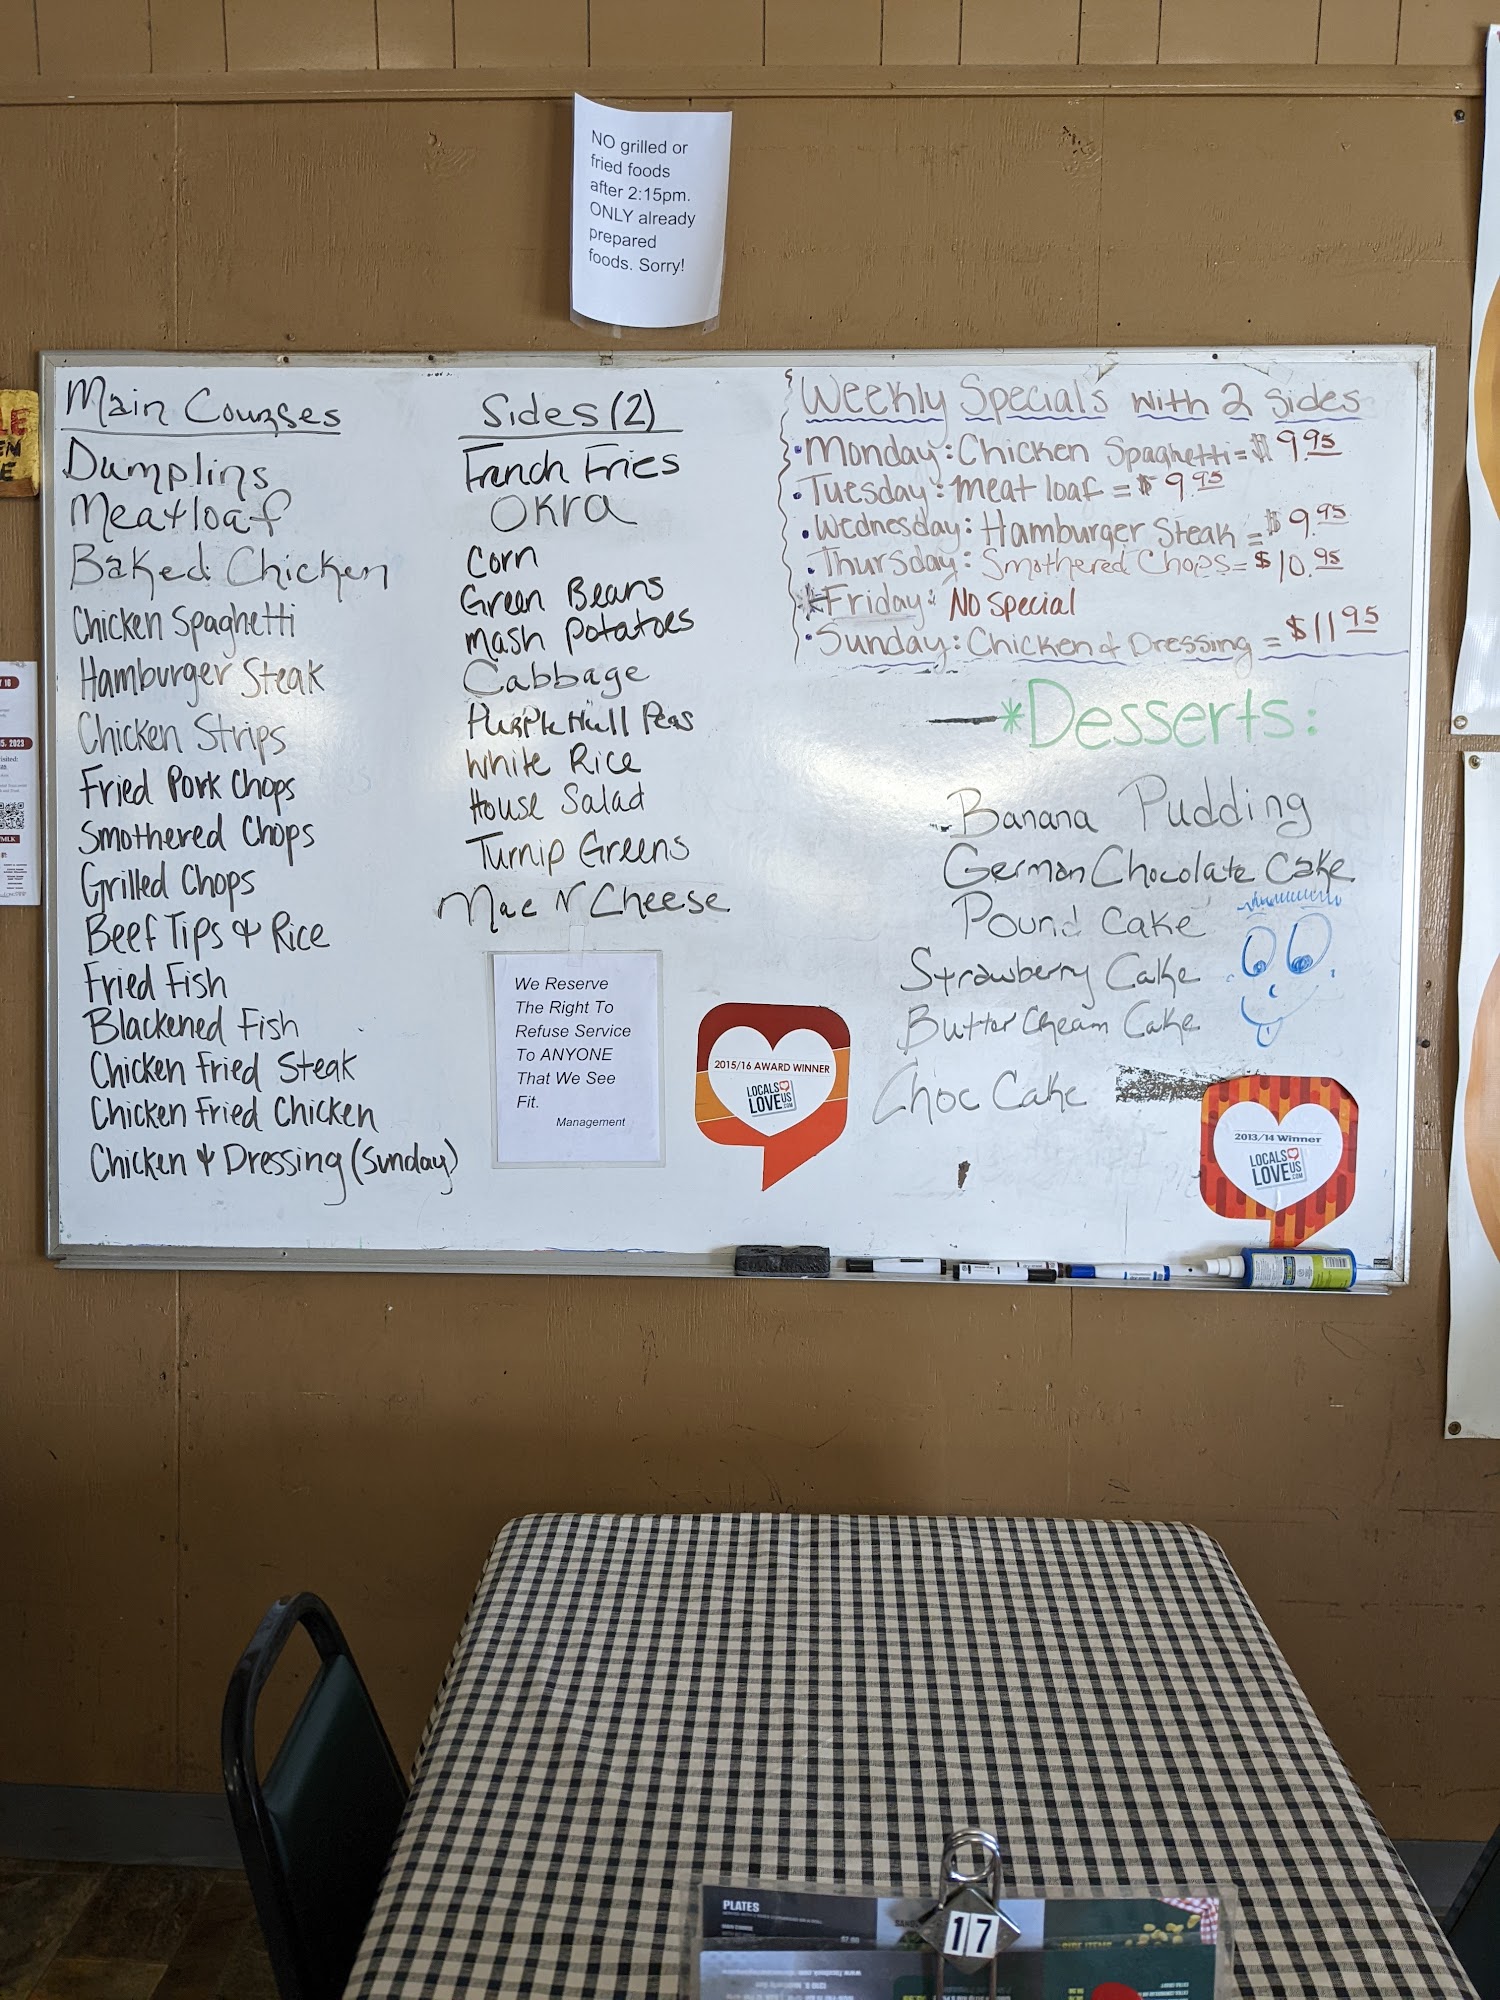 NO grilled or
fried foods
after 2:15pm.
ONLY already
prepared
foods. Sorry!
Main Courses
Dumplins
Meatloaf
Baked Chicken
Chicken Spaghetti
Hamburger Steak
Chicken Strips
Fried Pork Chops
Smothered Chops
Grilled Chops
Beef Tips & Rice
Fried Fish
Blackened Fish
Chicken Fried Steak
Chicken Fried Chicken
Chicken & Dressing (Sunday)
Sides (2)
French Fries
Okra
Corn
Green Beans
Mash Potatoes
Cabbage
Purple Hull Peas
White Rice
House Salad
Turnip Greens
Mac N Cheese
We Reserve
The Right To
Refuse Service
To ANYONE
That We See
Fit.
Management
2015/16 AWARD WINNER
LOCALS
LOVE US
.COM
Weekly Specials with 2 sides
Monday: Chicken Spaghetti = $ 9.95
Tuesday: meat loaf = $ 9.95
Wednesday: Hamburger Steak = $ 9.95
Thursday: Smothered Chops = $10.95
*Friday: No Special
Sunday: Chicken & Dressing = $11.95
*Desserts:
Banana Pudding
German Chocolate Cake
Pound Cake
Strawberry Cake
Butter Cream Cake
Choc Cake
2013/14 Winner
LOCALS
LOVE US
.COM
PLATES
17
SIDE ITEMS